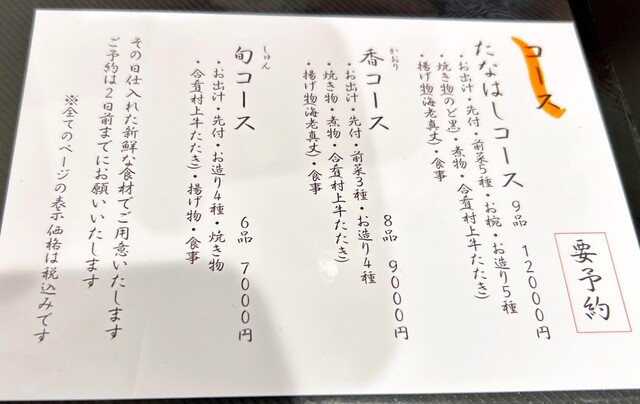 コース
要予約
たなはしコース 9品 12000円
・お出汁・先付・前菜5種・お椀・お造り5種
・焼き物のど黒)・煮物・合肴村上牛たたき)
・揚げ物海老真丈)・食事
かおり
香コース 8品 9000円
・お出汁・先付・前菜3種・お造り4種
・焼き物・煮物・合肴村上牛たたき)
・揚げ物海老真丈)・食事
しゅん
旬コース 6品 7000円
・お出汁・先付・お造り4種・焼き物
・合肴村上牛たたき)・揚げ物・食事
その日仕入れた新鮮な食材でご用意いたします
ご予約は2日前までにお願いいたします
※全てのページの表示価格は税込みです